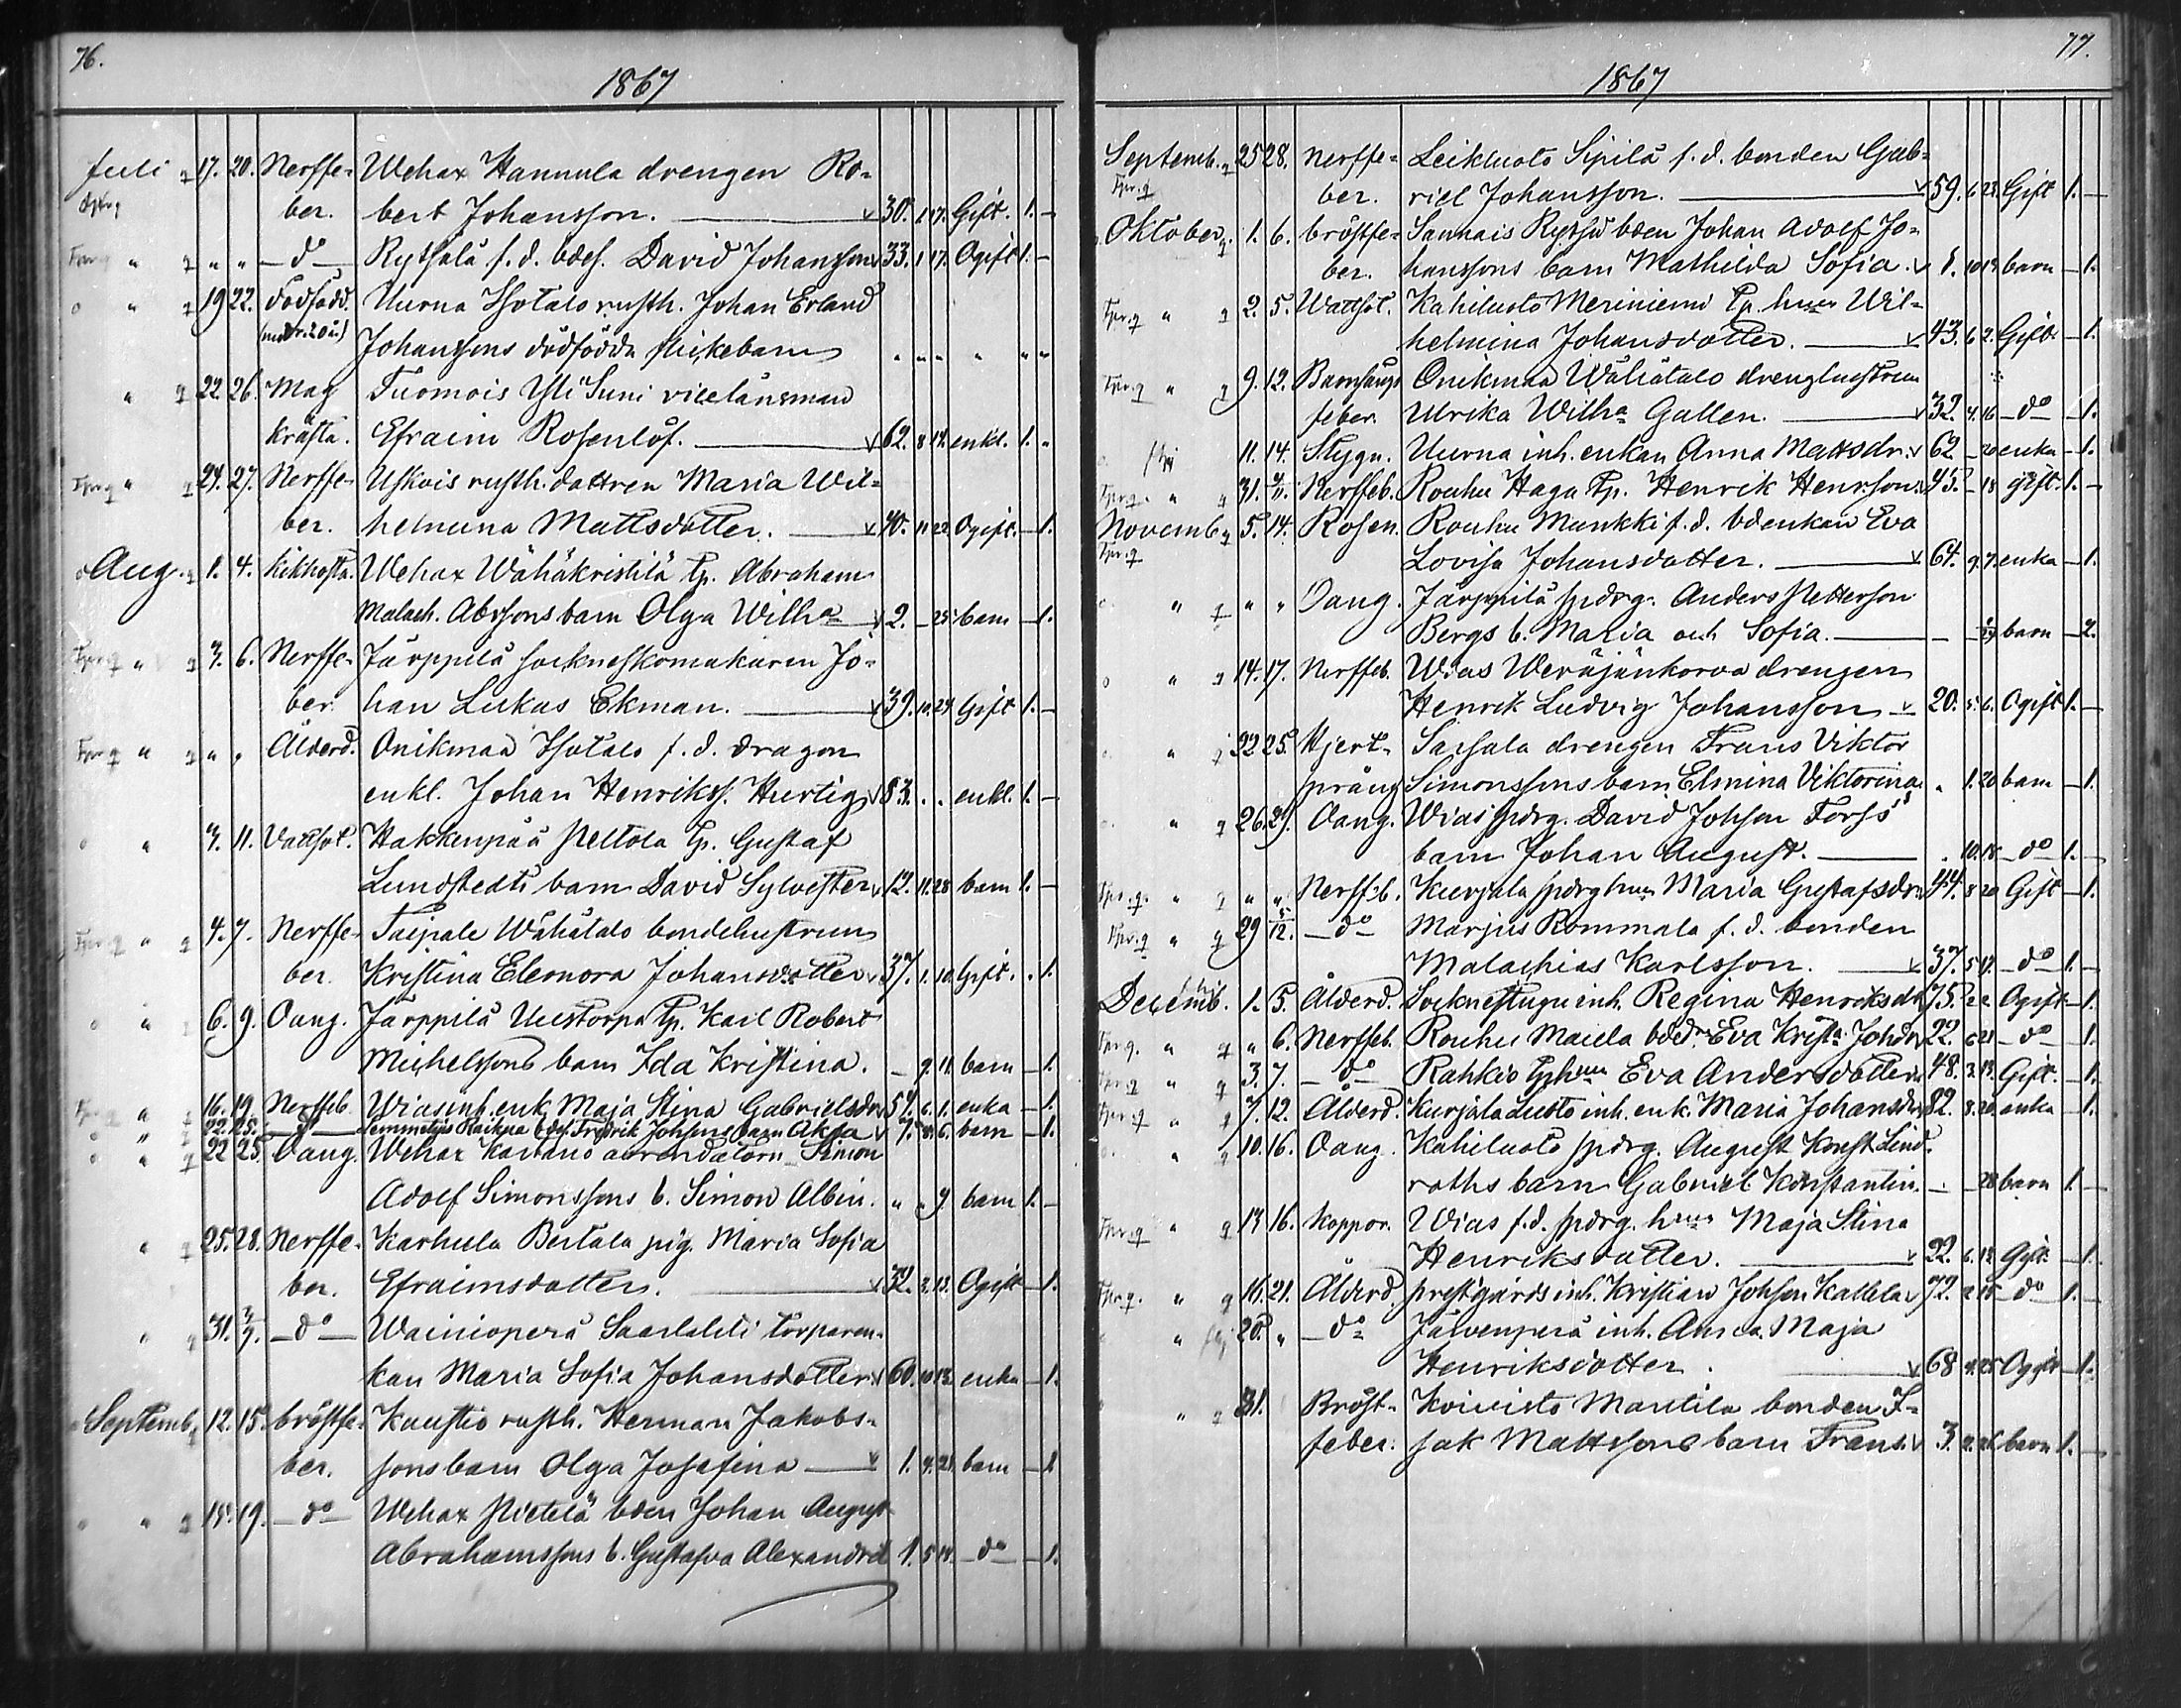 76.
1867
Juli 17. 20. Nerffe- Wehax Hannula drengen Ro-
ber. bert Johansson. 30. 1. 17. Gift. 1. —
" " " — d° — Rytsälä f. d. bdes. David Johansson 33. 1. 17. Ogift 1. —
" 19 22. Dödfödd. Uurna Isotalo rusth. Johan Erland
Johanssons dödfödda flickebarn " " " " " "
" 22. 26. Mag Tuomois Yli Suni vicelänsman
kräfta. Efraim Rosenlöf. 62. 8 14. enkl. 1. "
" 24. 27. Nerffe- Uskois rusth. dottren Maria Wil-
ber. helmina Mattsdotter. 40. 11 22. Ogift. — 1.
Aug. 1. 4. Kikhosta. Wehax Wähäkristilä tp. Abraham
Malach. Abrssons barn Olga Wilh:a 2. — 25 barn — 1.
" 3. 6. Nerffe- Järppilä sockneskomakaren Jo-
ber. han Lukas Ekman. 39. 10. 29. Gift 1. —
" " " Ålderd. Onikmaa Isotalo f. d. dragon
enkl. Johan Henrikss. Hurtig 83. . . enkl. 1. —
" 7. 11. Vattsot. Hakkenpää Peltola tp. Gustaf
Lundstedts barn David Sylvester 12. 11. 28 barn 1. —
" 4. 7. Nerffe- Taipale Wähätalo bondehustrun
ber. Kristina Eleonora Johansdotter 37. 1. 10. Gift. . 1.
" 6. 9. Oang. Järppilä Uustorpa tp. Karl Robert
Michelssons barn Ida Kristina. — 9. 11 barn — 1.
" 16. 19. Nerffeb. Wias inh. enk. Maja Stina Gabrielsdr 57. 6. 1. enka — 1.
" 22. 25. — d° — Lemmetyis Raikna bdes. Fredrik Johsons barn Akta 7. 8. 6. barn — 1.
" 22 25. Oang. Wehax Kartano arrendatorn Simon
Adolf Simonssons b. Simon Albin. " " 9 barn 1. —
" 25. 28. Nerffe- Karhula Bertala pig. Maria Sofia
ber. Efraimsdotter. 32. 3. 13. Ogift — 1.
" 31. 3/9. — d° — Wainionperä Saarlahti torparen-
kan Maria Sofia Johansdotter. 60. 10 13. enka — 1.
Septemb. 12. 15. bröstfe- Kaustio rusth. Herman Jakobs-
ber. sons barn Olga Josefina 1. 4. 21. barn — 1
" " 15. 19. — d° — Wehax Pietilä bden Johan August
Abrahamssons b. Gustafva Alexandra 1. 5 14. — d° — 1.
77.
1867
Septemb. 25 28. Nerffe- Leikluoto Sipilä f. d. bonden Gab-
ber. riel Johansson. 59. 6 23. Gift 1. —
Oktober 1. 6. bröstfe- Sannais Rytsä bden Johan Adolf Jo-
ber. hanssons barn Mathilda Sofia. 1. 10 19. barn — 1.
" 2. 5. Wattsot. Kahiluoto Meriniemi tp. hun Wil-
helmina Johansdotter. 43. 6 2. Gift. — 1.
" 9. 12. Barnsängs Onikmaa Wähätalo drenghustrun
feber. Ulrika Wilh:a Gallen. 32. 4. 16 — d° — 1.
11. 14. Stygn. Uurna inh. enkan Anna Mattsdr. 62 — 20 enka — 1.
" 31. Nerffeb. Rouhu Haga tp. Henrik Henrsson. 45. — 18 gift. 1. —
Novemb. 5. 14. Rosen. Rouhu Munkki f. d. bdenkan Eva
Lovisa Johansdotter. 64. 9. 7. enka — 1.
" " " Oang. Järppilä spdrg. Anders Petterson
Bergs b. Maria och Sofia. — barn — 2.
" 14. 17. Nerffeb. Wias Weräjänkorva drengen
Henrik Ludvig Johansson 20. 5. 6. Ogift 1. —
" 22 25. Hjert- Sarsala drengen Frans Viktor
språng Simonssons barn Elmina Viktorina " 1. 20 barn — 1.
" 26. 29. Oang. Wias spdrg. David Johsson Forss'
barn Johan August. . 10. 18 — d° — 1. —
" " " Nerffeb. Kurjala spdrg hun Maria Gustafsdr 44. 8 20 Gift — 1.
" 29 5/12. — d° — Marjus Rommala f. d. bonden
Malachias Karlsson. 37. 5 17. — d° — 1. —
Decemb. 1. 5. Ålderd. Sockenstugu inh. Regina Henriksdr 75. 2 2. Ogift — 1.
" " 6. Nerffeb. Rouhu Maula bded:n Eva Krist:a Johdr 22. 6 21 — d° — 1.
" 3. 7. — d° — Rahkio tphun Eva Andersdotter 48. 3. 13. Gift. — 1.
" 7. 12. Ålderd. Kurjala Luoto inh. enk. Maria Johansdr 82. 8. 20. enka — 1.
" 10. 16. Oang. Kahiluoto spdrg. August Konst Lind-
roths barn Gabriel Konstantin. — — 28 barn 1. —
" 13 16. Koppor. Wias f. d. spdrg. hun Maja Stina
Henriksdotter. 22. 6. 12 Gift. — 1.
" 16. 21. Ålderd. prestgårds inh. Kristian Johsson Kallela 72. 2 15 — d° — 1. —
" 20. " — d° — Järvenperä inh. Maja
Henriksdotter. 68 4. 25 Ogift — 1.
" 31. Bröst- Koivisto Marttila bonden I-
feber. sak Mattssons barn Frans. 3. 2. 26 barn 1. —